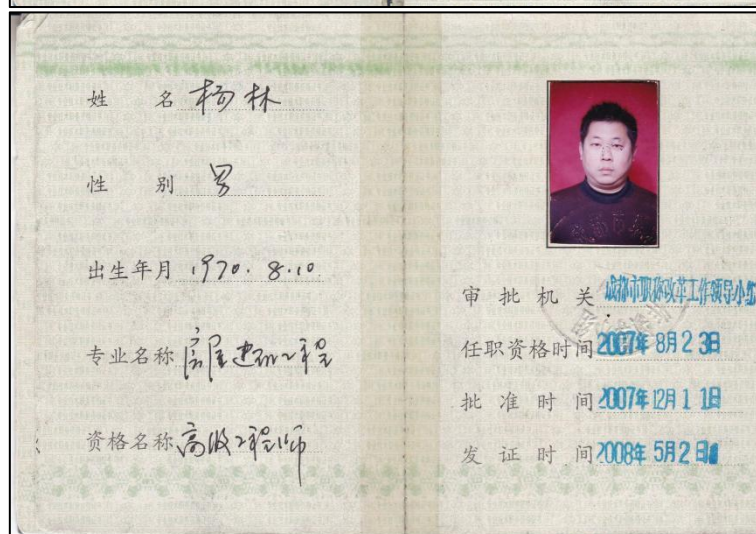 姓 名 杨林
性 别 男
出生年月 1970.8.10
专业名称 房屋建筑工程
资格名称 高级工程师
审批机关 成都市职称改革工作领导小组
任职资格时间 2007年8月23日
批准时间 2007年12月11日
发证时间 2008年5月2日